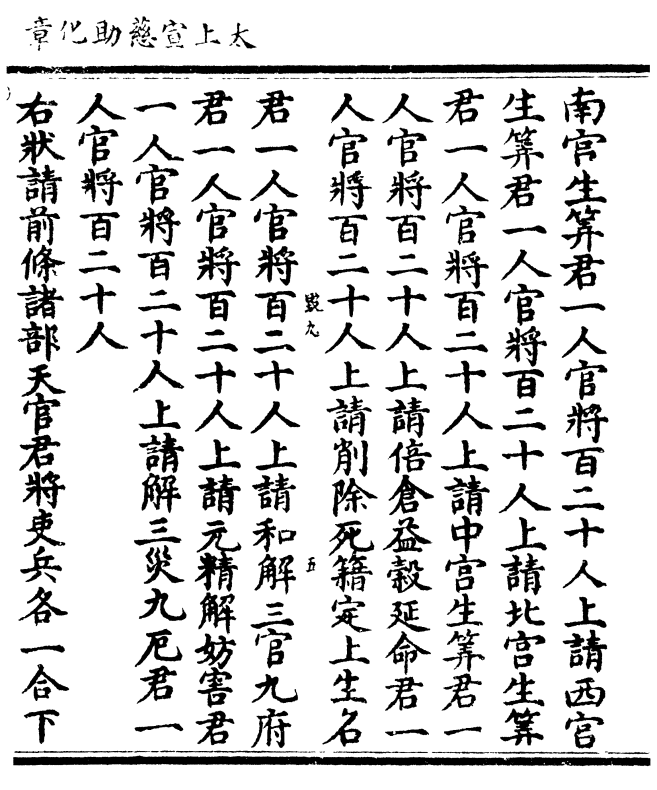 太上宣慈助化章
南宮生筭君一人官將百二十人上請西宮
生筭君一人官將百二十人上請北宮生筭
君一人官將百二十人上請中宮生筭君一
人官將百二十人上請倍倉益穀延命君一
人官將百二十人上請削除死籍定上生名
㲉九
五
君一人官將百二十人上請和解三官九府
君一人官將百二十人上請元精解妨害君
一人官將百二十人上請解三災九厄君一
人官將百二十人
右狀請前條諸部天官君將吏兵各一合下